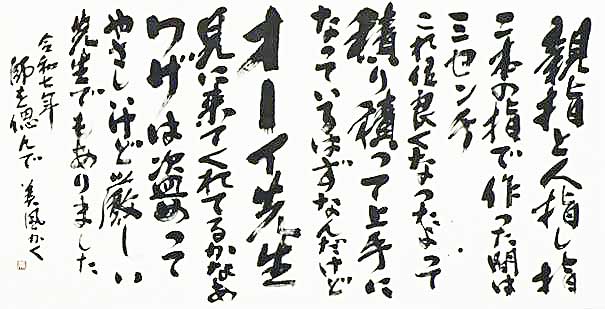 親指と人指し指
二本の指で作った間は
三センチ
これ位良くなったよって
積り積って上手に
なっているはずなんだけど
オーイ先生
見に来てくれてるかなぁ
ワザは盗めって
やさしいけど厳しい
先生でもありました
令和七年
師を偲んで 美風かく